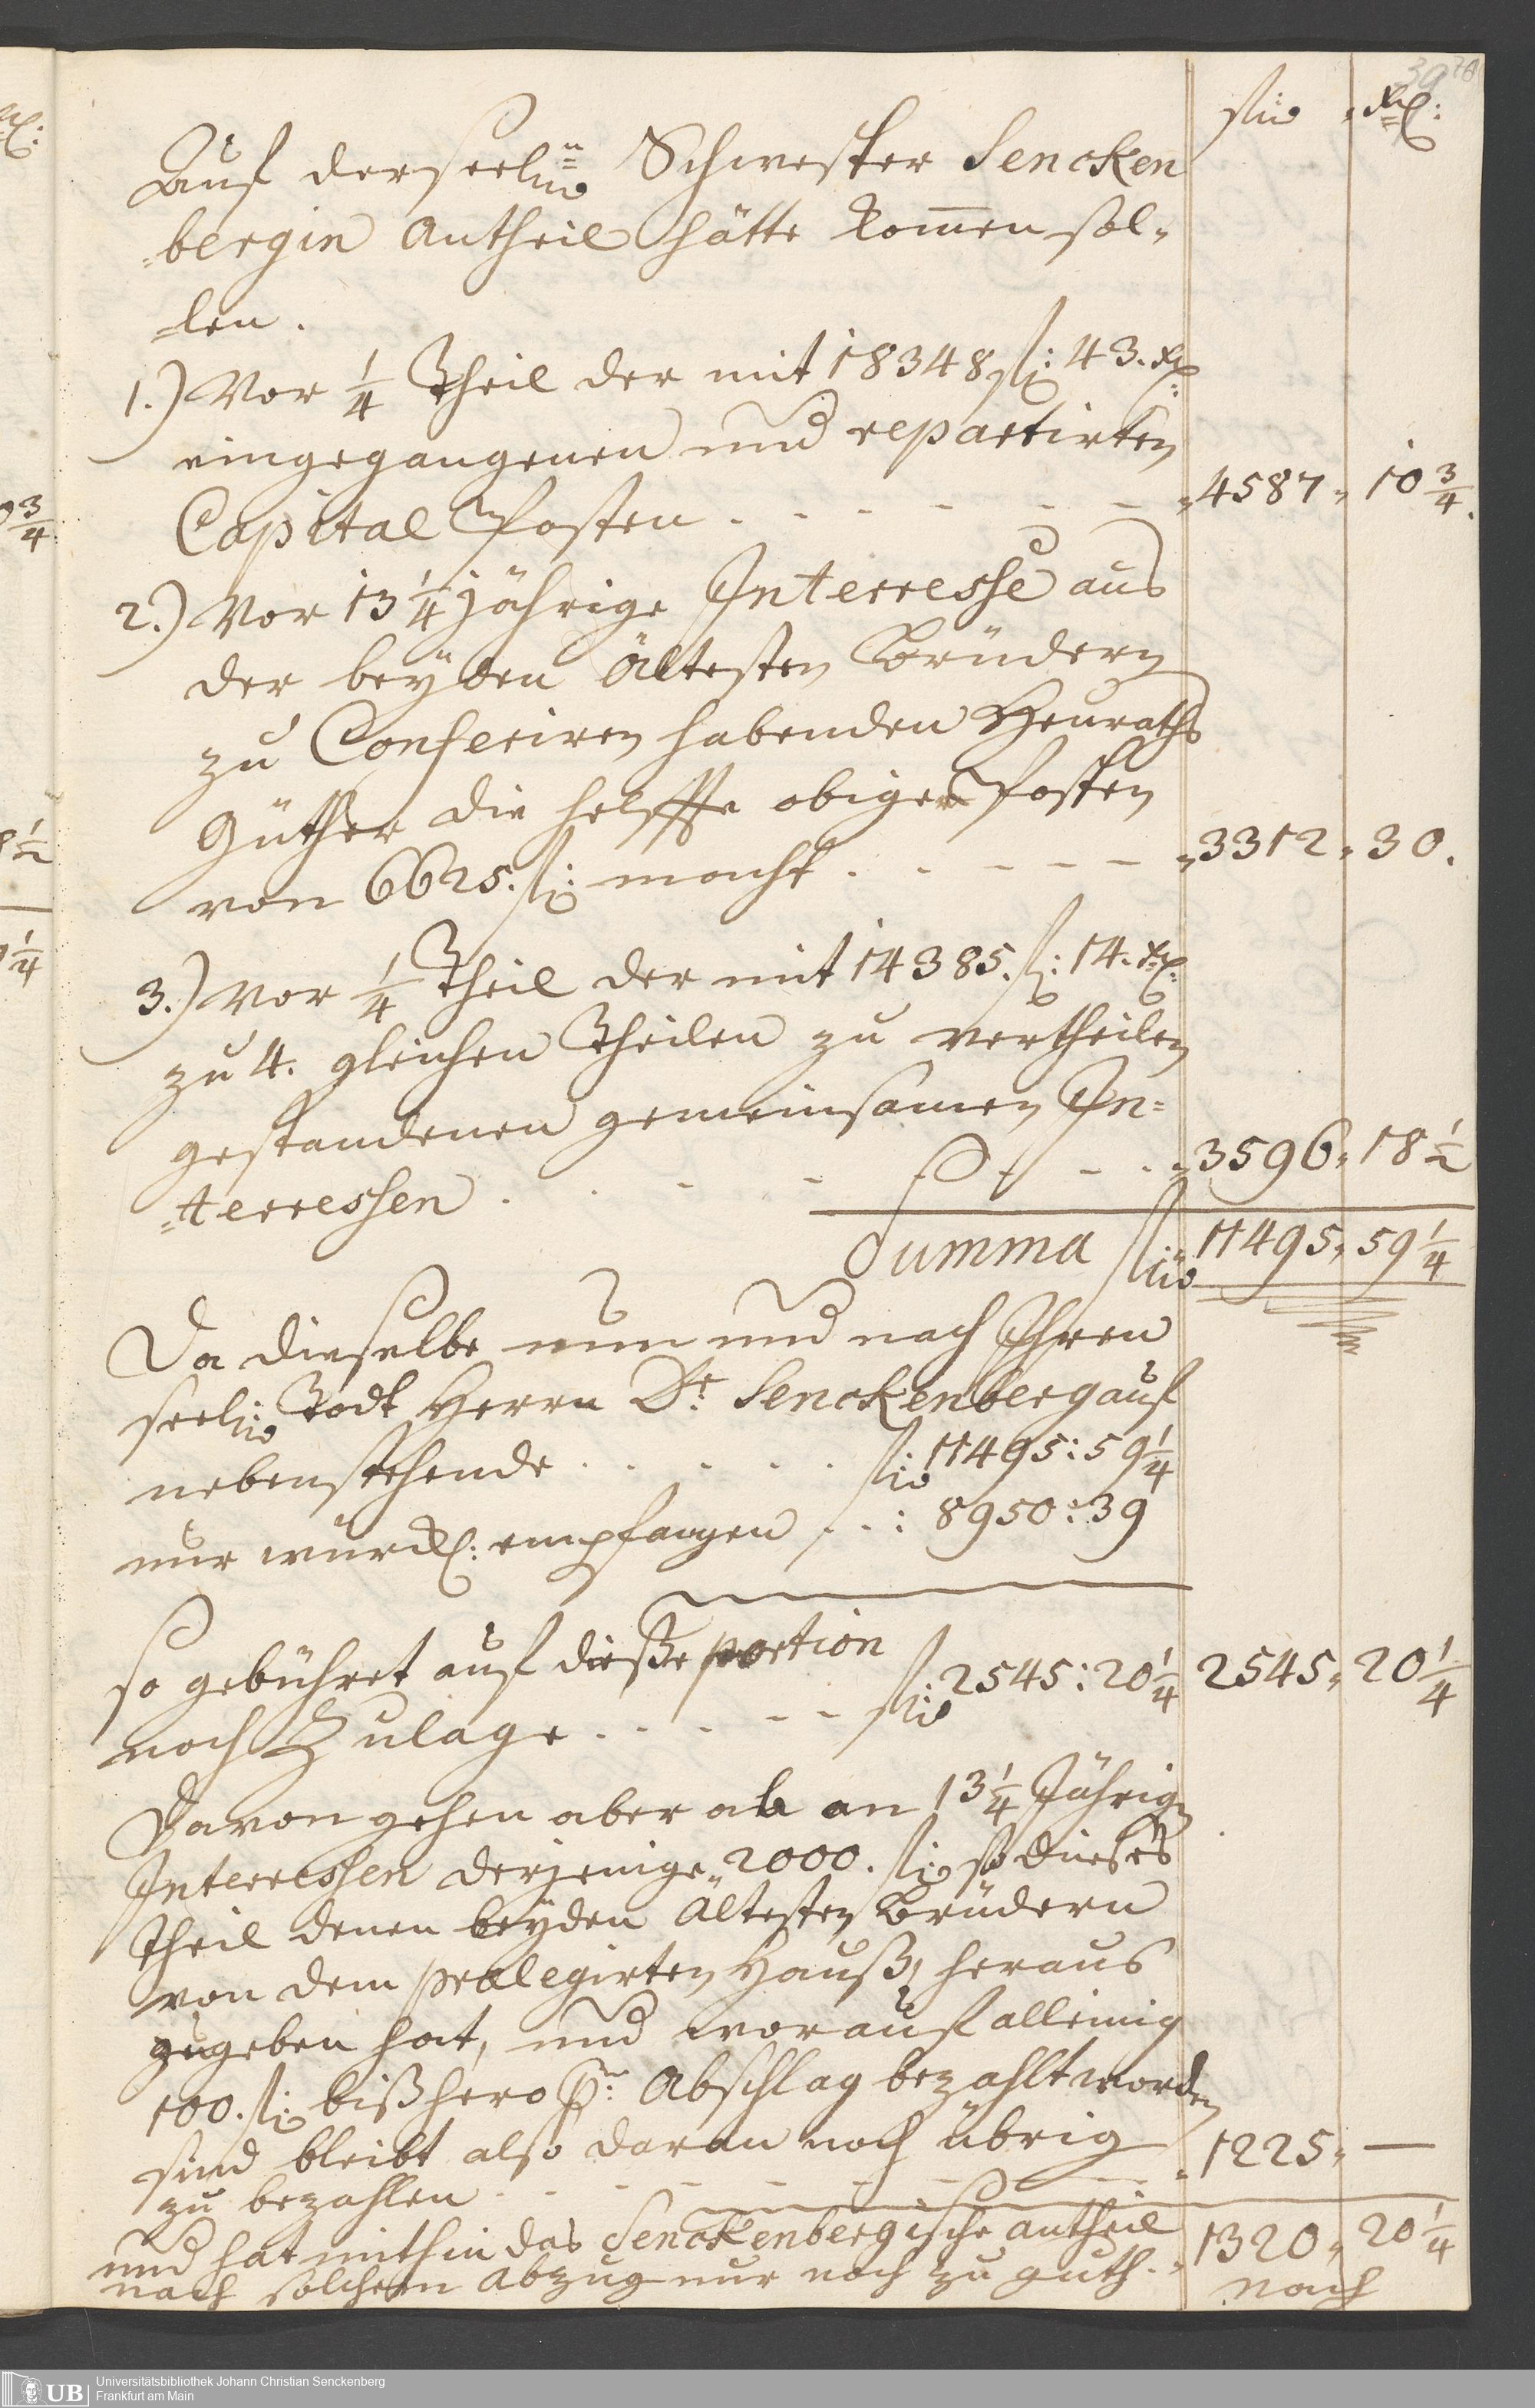 39 78
fl: xr:
Auf der seel: Schwester Sencken
=bergin Antheil hätte kom̄en sol=
=len.
1.) Vor 1/4 Theil der mit 18348 fl: 43. xr:
eingegangenen und repartirten
Capital Posten . - - - - - " 4587 " 10 3/4.
2.) Vor 13 1/4 jährige Interresse aus
der beÿden ältesten Brüdern
zu Conferiren habenden Heuraths
Güther die helffte obiger Posten
von 6625. fl: macht . - - - - " 3312 " 30.
3.) Vor 1/4 Theil der mit 14385. fl: 14. xr:
zu 4. gleichen Theilen zu vertheilen
gestandenen gemeinsamen In=
=terressen . - - - - - " 3596 " 18 1/2
Summa fl: " 11495 " 59 1/4
Da dieselbe nun und nach Ihren
seel: Todt Herrn Dr: Senckenberg auf
nebenstehende . - - - - fl: 11495 : 59 1/4
nur würckl: empfangen . . : 8950 : 39
so gebühret auf diesse portion
noch Zulage . - - - - fl: 2545 : 20 1/4 2545 " 20 1/4
Davon gehen aber ab an 13 1/4 Jährige
Interressen derjenige " 2000. fl: so dieses
Theil denen beÿden ältesten Brüdern
von dem praelegirten Hauss heraus
zugeben hat, und worauf alleinig
100. fl: bisshero pr: Abschlag bezahlt worden
sind bleibt also daran noch übrig
zu bezahlen . - - - - - " 1225 " —
und hat mithin das Senckenbergische antheil
nach solchem abzug nur noch zu guth. " 1320 " 20 1/4
nach
Universitätsbibliothek Johann Christian Senckenberg
UB Frankfurt am Main